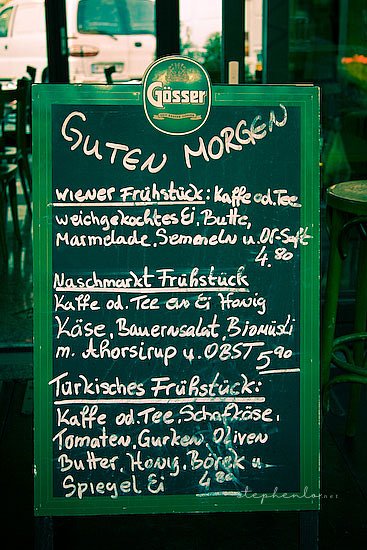 Gösser
GUTEN MORGEN
Wiener Frühstück: Kaffe od. Tee
weichgekochtes Ei, Butte,
Marmelade, Semmeln u. Or-Saft
4.80
Naschmarkt Frühstück
Kaffe od. Tee Ei Honig
Käse, Bauernsalat, Biomüsli
m. Ahorsirup u. OBST 5,90
Türkisches Frühstück:
Kaffe od. Tee, Schafkäse,
Tomaten, Gurken, Oliven
Butter, Honig, Börek u.
Spiegel Ei 4.80
stephenlo.net